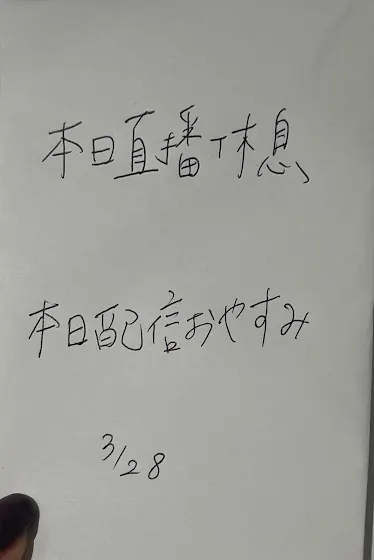 本日直播休息
本日配信おやすみ
3/28